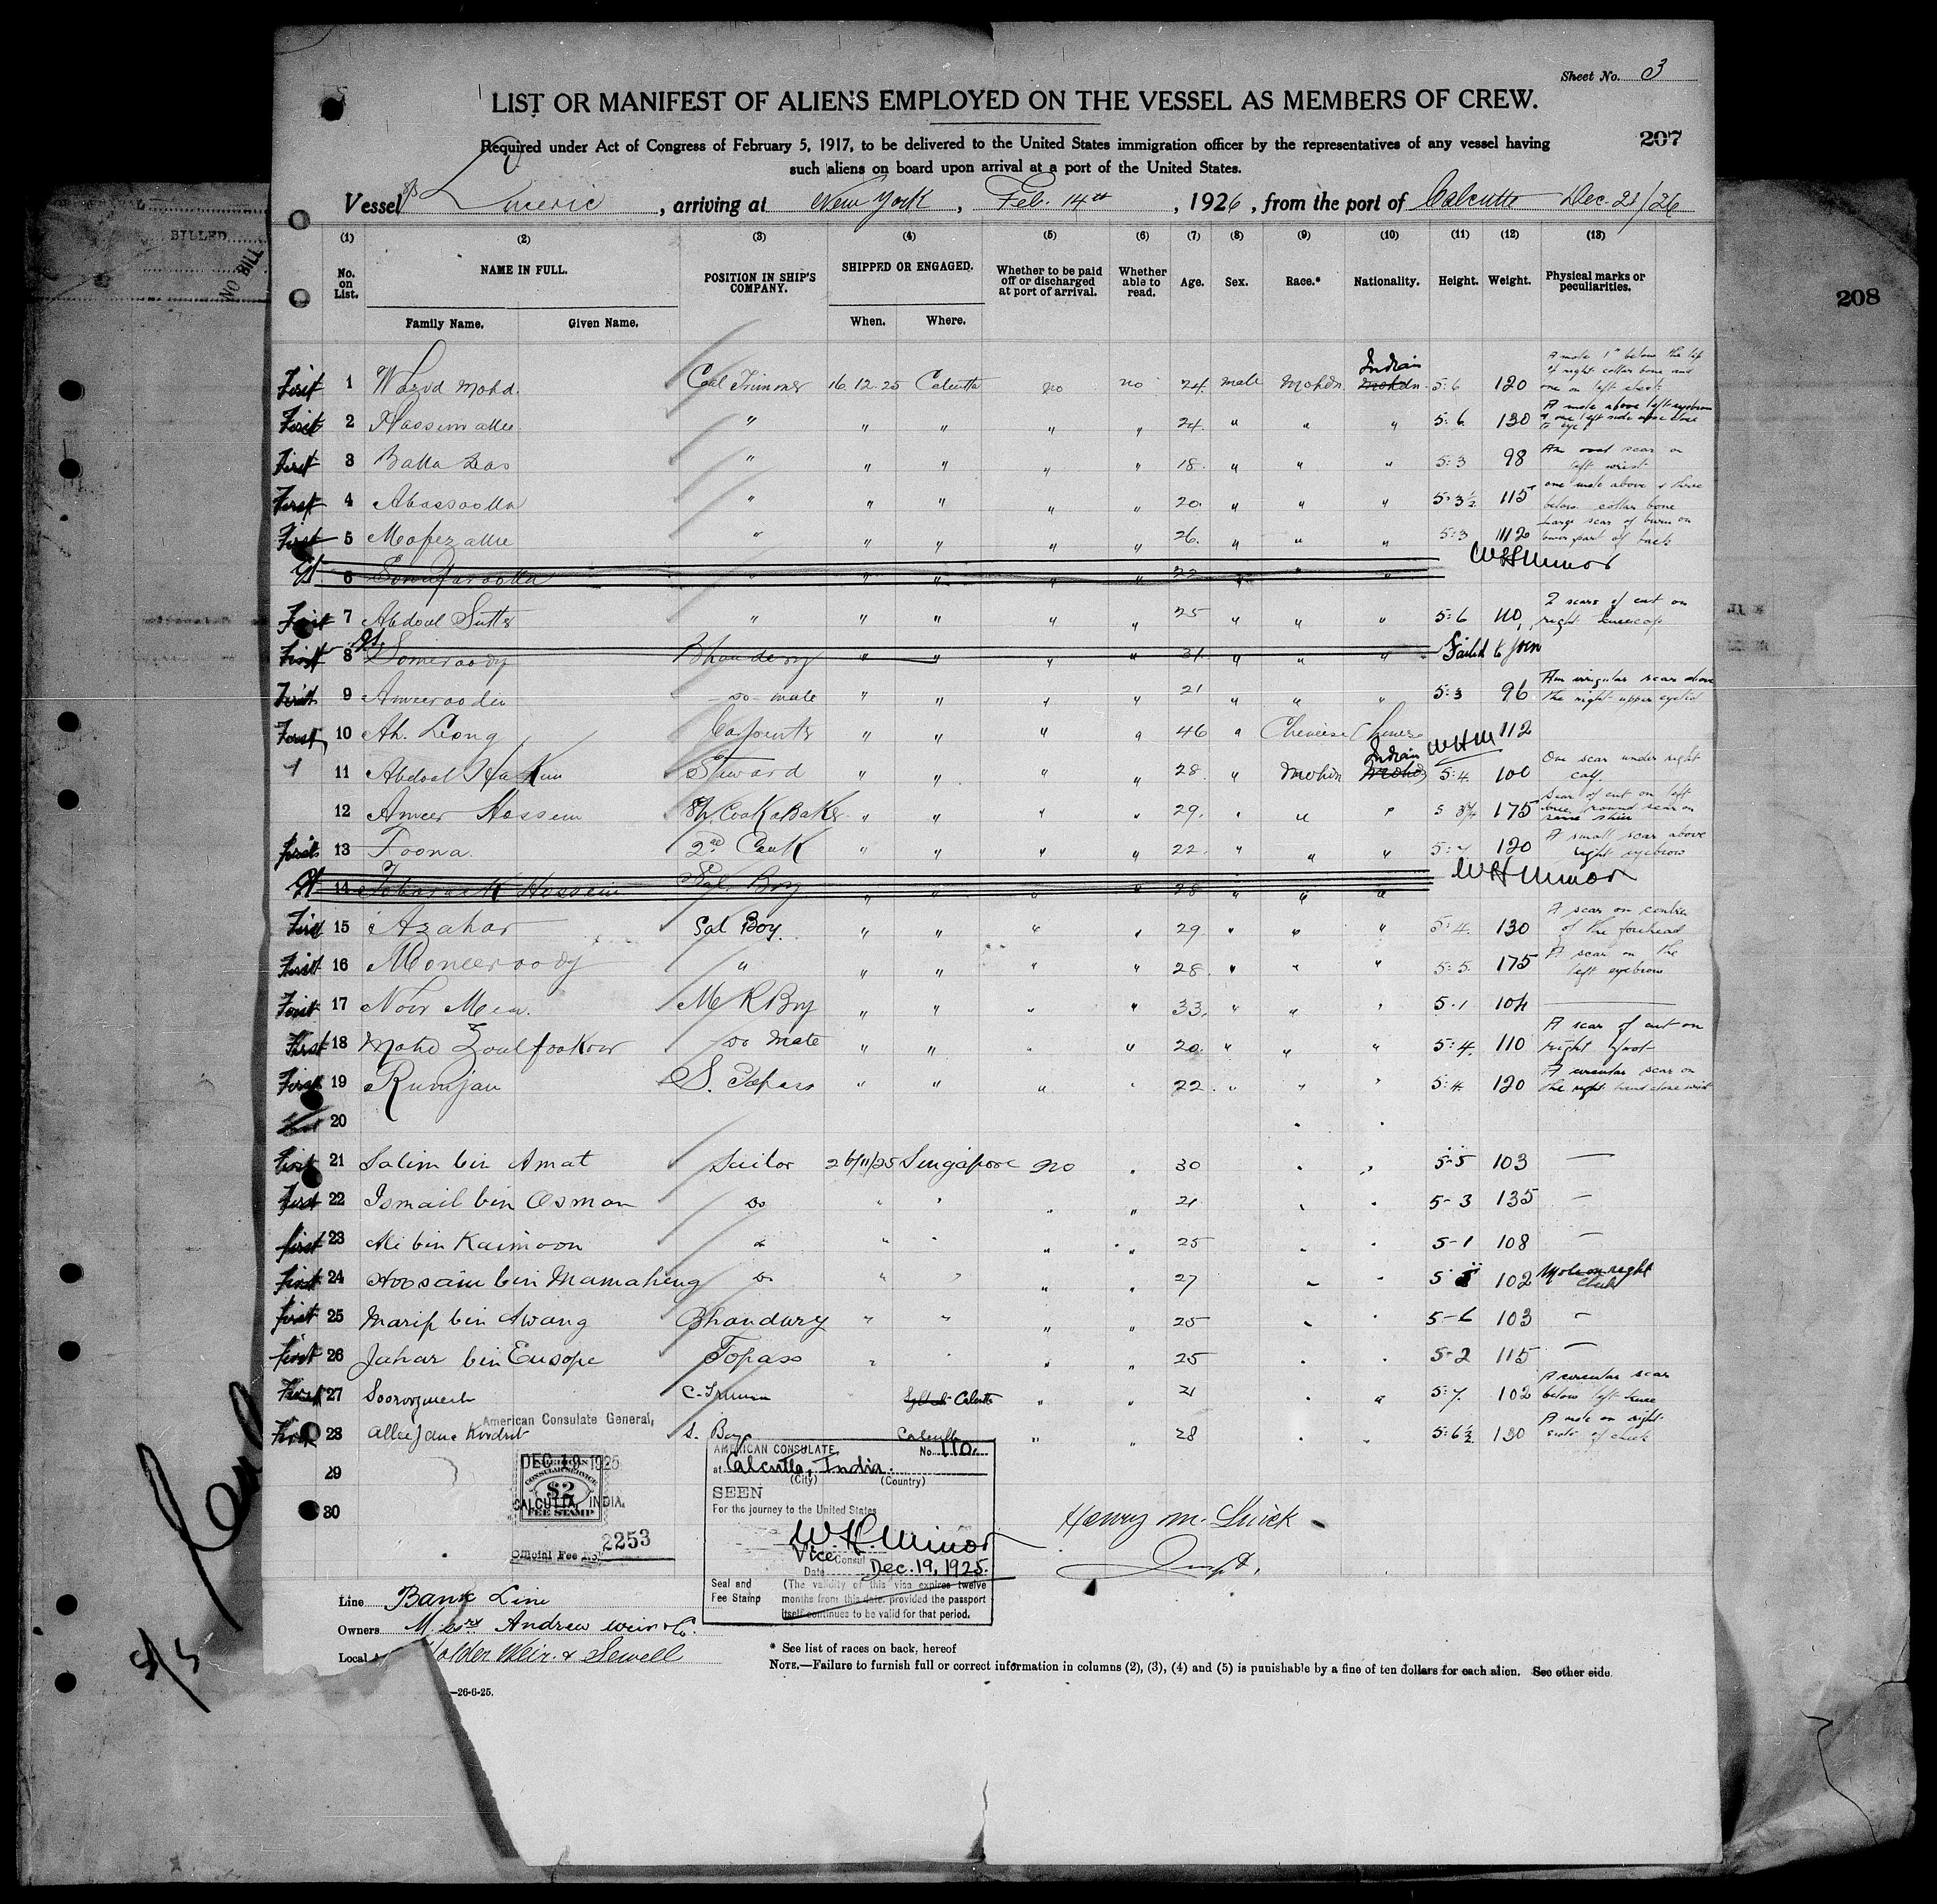 Sheet No. 3
LIST OR MANIFEST OF ALIENS EMPLOYED ON THE VESSEL AS MEMBERS OF CREW.
207
Required under Act of Congress of February 5, 1917, to be delivered to the United States immigration officer by the representatives of any vessel having
such aliens on board upon arrival at a port of the United States.
Vessel S/S Luceric, arriving at New York, Feb. 14th, 1926, from the port of Calcutta Dec. 21/26
BILLED
NO BILL
208
(1) (2) (3) (4) (5) (6) (7) (8) (9) (10) (11) (12) (13)
No. on List. NAME IN FULL. POSITION IN SHIP'S COMPANY. SHIPPED OR ENGAGED. Whether to be paid off or discharged at port of arrival. Whether able to read. Age. Sex. Race.* Nationality. Height. Weight. Physical marks or peculiarities.
Family Name. Given Name. When. Where.
First 1 Mohd. Coal Trimmer 16.12.25 Calcutta no no 24. male Mohdn Mohdn Indian 5:6 120 A mole 1" below the tip of right collar bone and one on left chest
First 2 Hassim allee " " " " " 24. " " " 5:6. 130 A mole above left eyebrow & one left side nose close to eye
First 3 Balla " " " " " 18. " " " 5:3 98 An oval scar on left wrist
First 4 Abassoolla " " " " " 20. " " " 5:3½ 115 one mole above & three below collar bone
First 5 Mofez allee " " " " " 26. " " " 5:3 112 Large scar of burn on lower part of back
6 " " " " " 22 " " " WHMinor
First 7 Abdool " " " " " 25 " " " 5:6 110 2 scars of cut on right kneecap
First 8 Someroody Bhandery " " " " 31. " " " Failed to join
First 9 Ameeroodin do mate " " " " 21 " " " 5:3 96 An irregular scar above the right upper eyelid
First 10 Ah. Leong " " " " 46 " Cheneise Chinese WHM 112
11 Abdool Hakim Steward " " " " 28. " Mohdn Mohdn Indian 5:4. 100 One scar under right calf
12 Ameer Hossein Cook & Baker " " " " 29. " " " 5 3¾ 175 Scar of cut on left knee, round scar on shin
First 13 Foona. 2nd Cook " " " " 22. " " " 120 A small scar above right eyebrow
14 Hossein Sal. Boy " " " " 28 " " " WHMinor
First 15 Azahar Sal Boy. " " " " 29. " " " 5:4. 130 A scar on centre of the forehead
First 16 Moneeroody " " " " " 28. " " " 5:5. 175 A scar on the left eyebrow
First 17 Noor Mea. M R Boy " " " " 33. " " " 5.1 104
First 18 Mohd Zoulfookur do Mate " " " " 20. " " " 5:4. 110 A scar of cut on right foot
First 19 Rumjan S. Topass " " " " 22. " " " 5:4. 120 A circular scar on the right hand close wrist
20
First 21 Salim bin Amat Sailor 26/11/25 Singapore no " 30 5-5 103 —
First 22 Ismail bin Osman do " " " " 21 5-3 135 —
First 23 Ali bin Kaimoon do " " " " 25 5-1 108 —
First 24 Hoosain bin Mamaheng do " " " " 27 102 Mole on right cheek
First 25 Marif bin Awang Bhandury " " " " 25 5-6 103 -
First 26 Jahar bin Eusope Topass " " " " 25 5-2 115 —
First 27 Calcutta " " 21 5:7. 102 A circular scar below left knee
28 S. Boy Calcutta " " 28 5:6½ 130 A mole on right side of cheek
29
30
American Consulate General,
DEC 19 1925
CONSULAR SERVICE
$2
CALCUTTA, INDIA.
FEE STAMP
Official Fee No. 2253
AMERICAN CONSULATE, No. 110.
at Calcutta, India.
(City) (Country)
SEEN
For the journey to the United States
W.H.Minor
Vice Consul
Date Dec. 19, 1925.
Seal and Fee Stamp
(The validity of this visa expires twelve
months from this date, provided the passport
itself continues to be valid for that period.
Henry M.
Line Bank Line
Owners Messrs Andrew Weir & Co.
Local Weir & Sewell
* See list of races on back, hereof
NOTE.—Failure to furnish full or correct information in columns (2), (3), (4) and (5) is punishable by a fine of ten dollars for each alien. See other side.
—26-6-25.
S/S